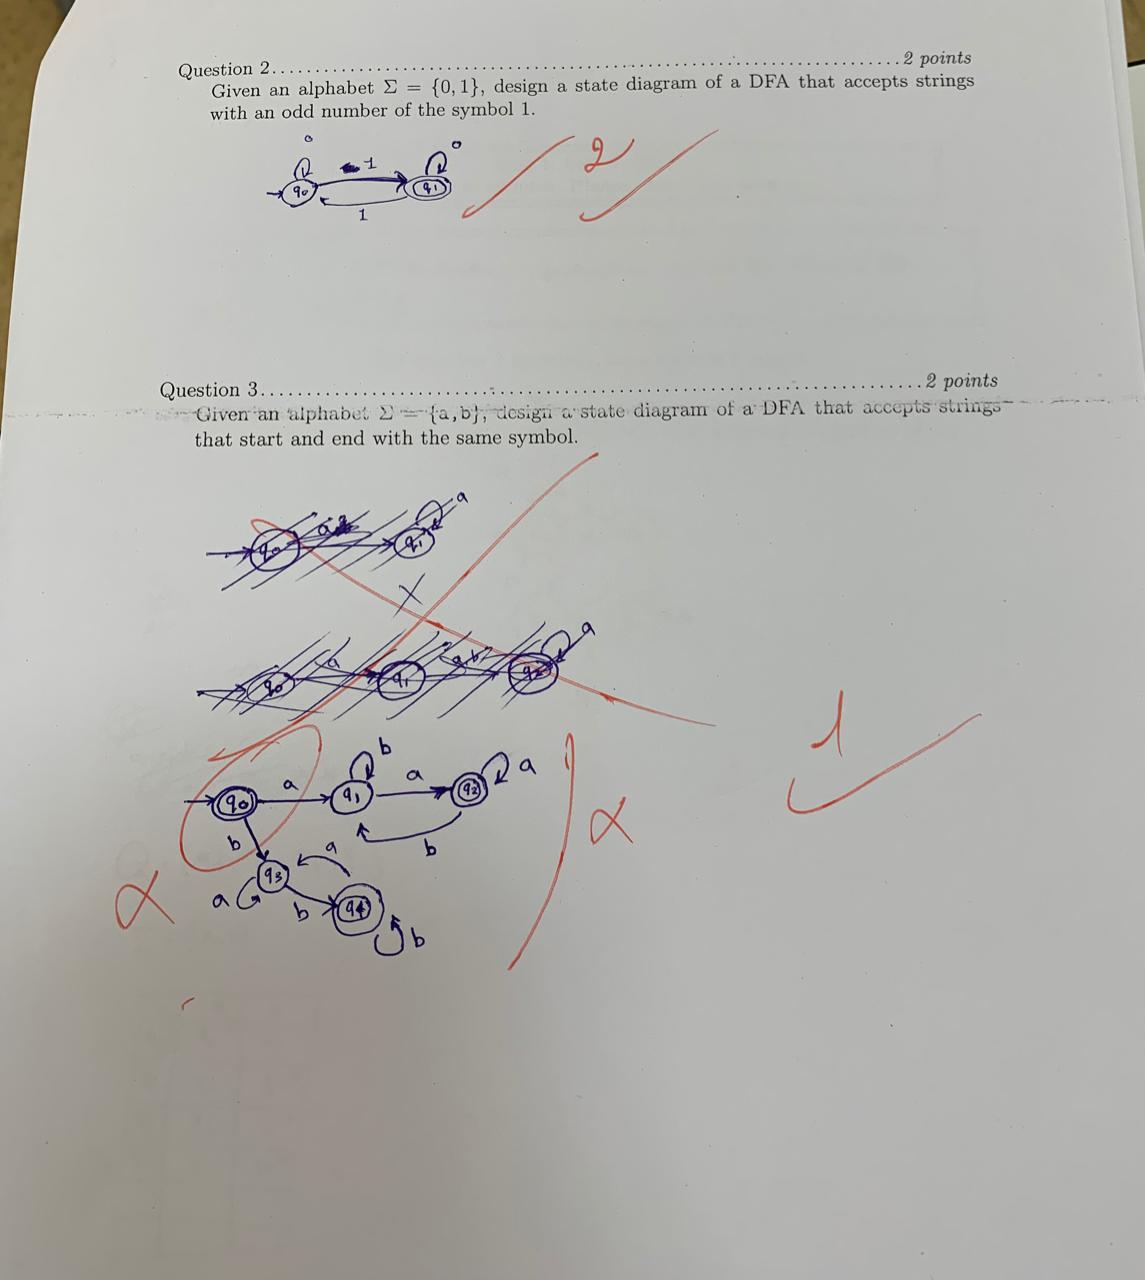 Question 2.......... 2 points
Given an alphabet Σ = {0, 1}, design a state diagram of a DFA that accepts strings
with an odd number of the symbol 1.
0 1 0
q0 q1
1
2
Question 3.......... 2 points
Given an alphabet Σ = {a, b}, design a state diagram of a DFA that accepts strings
that start and end with the same symbol.
a a
q0 q1
X
a a,b a
q0 q1 q2
1
b
a a a
q0 q1 q2
b b
a
q3
a b q4
b